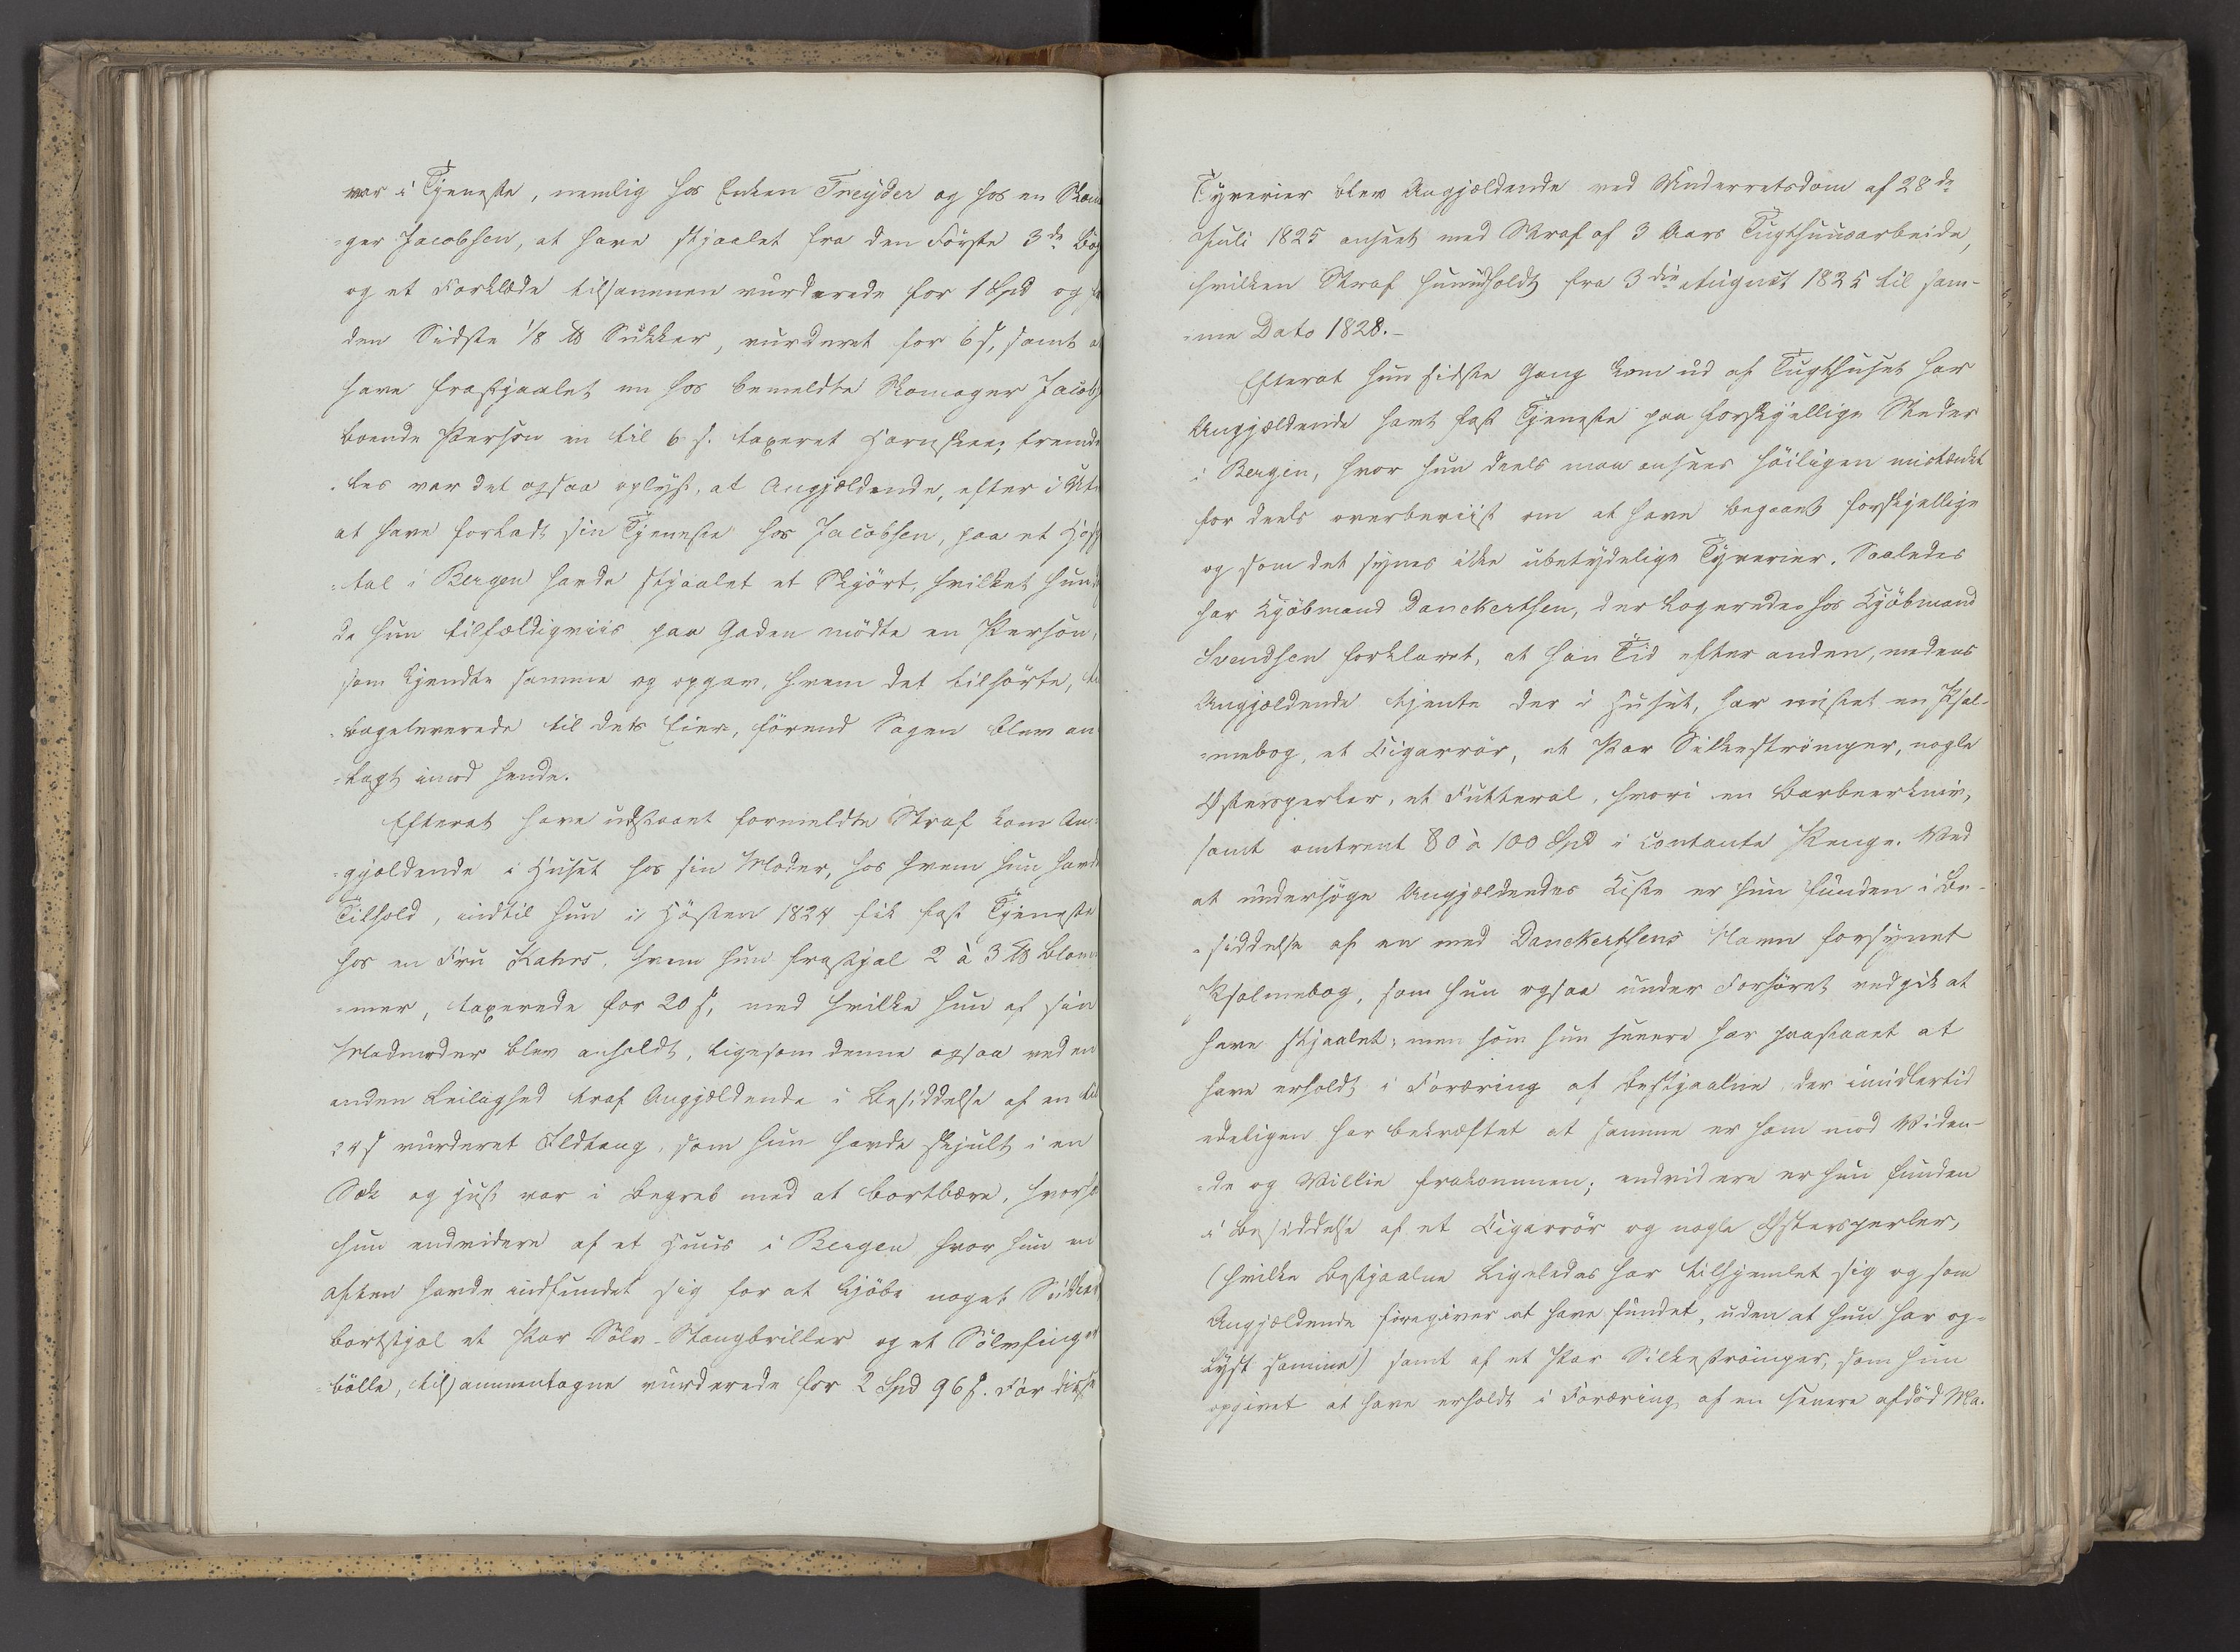 var i Tjeneste, nemlig hos Enken Treyder og hos en Skoma
=ger Jacobsen, at have stjaalet fra den Første 3de Bøg
og et Forklæde tilsammen vurderede for 1 Spd og fra
den Sidste 1/8 ℔ Sukker, vurderet for 6 s, samt at
have frastjaalet en hos bemeldte Skomager Jacobs
boende Person en til 6 s. taxeret Hornskee; fremde
=les var det ogsaa oplyst, at Angjældende, efter i
at have forladt sin Tjeneste hos Jacobsen, paa et Hosp
=tal i Bergen havde stjaalet et Skjørt, hvilket hun,
da hun tilfældigviis paa Gaden mødte en Person,
som kjendte samme og opgav, hvem det tilhørte, til
=bageleverede til dets Eier, førend Sagen blev an
=lagt imod hende.
Efterat have udstaaet formeldte Straf kom An=
=gjældende i Huset hos sin Moder, hos hvem hun havde
Tilhold, indtil hun i Høsten 1824 fik fast Tjeneste
hos en Fru Kahrs, hvem hun frastjal 2 à 3 ℔ Blom
=mer, taxerede for 20 s, med hvilke hun af sin
Madmoder blev anholdt, ligesom denne ogsaa ved en
anden Leilighed traf Angjældende i Besiddelse af en til
24 s vurderet Ildtang, som hun havde skjult i en
Sæk og just var i Begreb med at bortbære, hvorhos
hun endvidere af et Huus i Bergen hvor hun en
Aften havde indfundet sig for at kjøbe noget Sukker
bortstjal et Par Sølv-Stangbriller og et Sølvfinger
=bølle, tilsammentagne vurderede for 2 Spd 96 s. For disse
Tyverier blev Angjældende ved Underretsdom af 28de
Juli 1825 anseet med Straf af 3 Aars Tugthuusarbeide,
hvilken Straf hun udholdt fra 3die August 1825 til sam-
=me Dato 1828.-
Efterat hun sidste Gang kom ud af Tugthuset har
Angjældende havt fast Tjeneste paa forskjellige Steder
i Bergen, hvor hun deels maa ansees høiligen mistænkt
for deels overbeviist om at have begaaet forskjellige
og som det synes ikke ubetydelige Tyverier. Saaledes
har Kjøbmand Danckertsen, der logerede hos Kjøbmand
Svendsen forklaret, at han Tid efter anden, medens
Angjældende tjente der i Huset, har mistet en Psal-
=mebog, et Cigarrør, et Par Silkestrømper, nogle
Østersperler, et Futteral, hvori en Barbeerkniv,
samt omtrent 80 à 100 Spd i contante Penge. Ved
at undersøge Angjældendes Kiste er hun funden i Be-
=siddelse af en med Danckertsens Navn forsynet
Psalmebog, som hun ogsaa under Forhøret vedgik at
have stjaalet, men som hun senere har paastaaet at
have erholdt i Foræring af Bestjaalne der imidlertid
edeligen har bekræftet at samme er ham mod Viden-
=de og Villie frakommen; endvidere er hun funden
i Besiddelse af et Cigarrør og nogle Østersperler,
(hvilke Bestjaalne ligeledes har tilhjemlet sig og som
Angjældende foregiver at have fundet, uden at hun har op=
lyst samme) samt af et Par Silkestrømper, som hun
opgivet at have erholdt i Foræring af en senere afdød Ma.